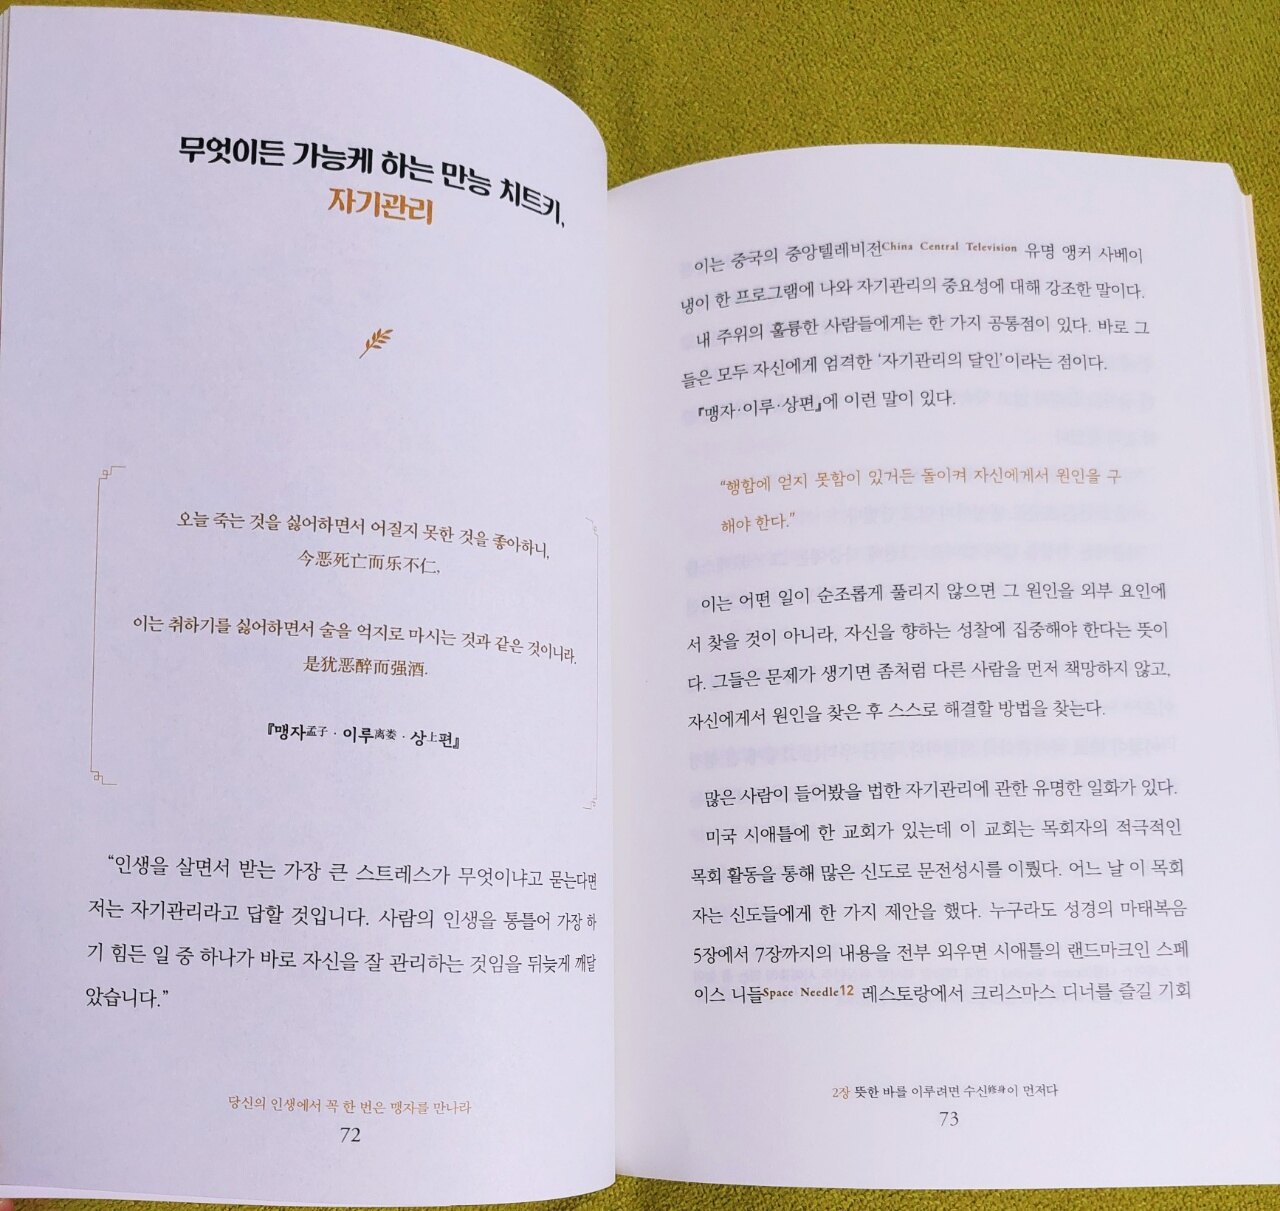 무엇이든 가능케 하는 만능 치트키,
자기관리
오늘 죽는 것을 싫어하면서 어질지 못한 것을 좋아하니,
今恶死亡而乐不仁,
이는 취하기를 싫어하면서 술을 억지로 마시는 것과 같은 것이니라.
是犹恶醉而强酒.
『맹자孟子 · 이루离娄 · 상上편』
“인생을 살면서 받는 가장 큰 스트레스가 무엇이냐고 묻는다면
저는 자기관리라고 답할 것입니다. 사람의 인생을 통틀어 가장 하
기 힘든 일 중 하나가 바로 자신을 잘 관리하는 것임을 뒤늦게 깨달
았습니다.”
당신의 인생에서 꼭 한 번은 맹자를 만나라
72
이는 중국의 중앙텔레비전China Central Television 유명 앵커 사베이
냉이 한 프로그램에 나와 자기관리의 중요성에 대해 강조한 말이다.
내 주위의 훌륭한 사람들에게는 한 가지 공통점이 있다. 바로 그
들은 모두 자신에게 엄격한 ‘자기관리의 달인’이라는 점이다.
『맹자·이루·상편』에 이런 말이 있다.
“행함에 얻지 못함이 있거든 돌이켜 자신에게서 원인을 구
해야 한다.”
이는 어떤 일이 순조롭게 풀리지 않으면 그 원인을 외부 요인에
서 찾을 것이 아니라, 자신을 향하는 성찰에 집중해야 한다는 뜻이
다. 그들은 문제가 생기면 좀처럼 다른 사람을 먼저 책망하지 않고,
자신에게서 원인을 찾은 후 스스로 해결할 방법을 찾는다.
많은 사람이 들어봤을 법한 자기관리에 관한 유명한 일화가 있다.
미국 시애틀에 한 교회가 있는데 이 교회는 목회자의 적극적인
목회 활동을 통해 많은 신도로 문전성시를 이뤘다. 어느 날 이 목회
자는 신도들에게 한 가지 제안을 했다. 누구라도 성경의 마태복음
5장에서 7장까지의 내용을 전부 외우면 시애틀의 랜드마크인 스페
이스 니들Space Needle12 레스토랑에서 크리스마스 디너를 즐길 기회
2장 뜻한 바를 이루려면 수신修身이 먼저다
73